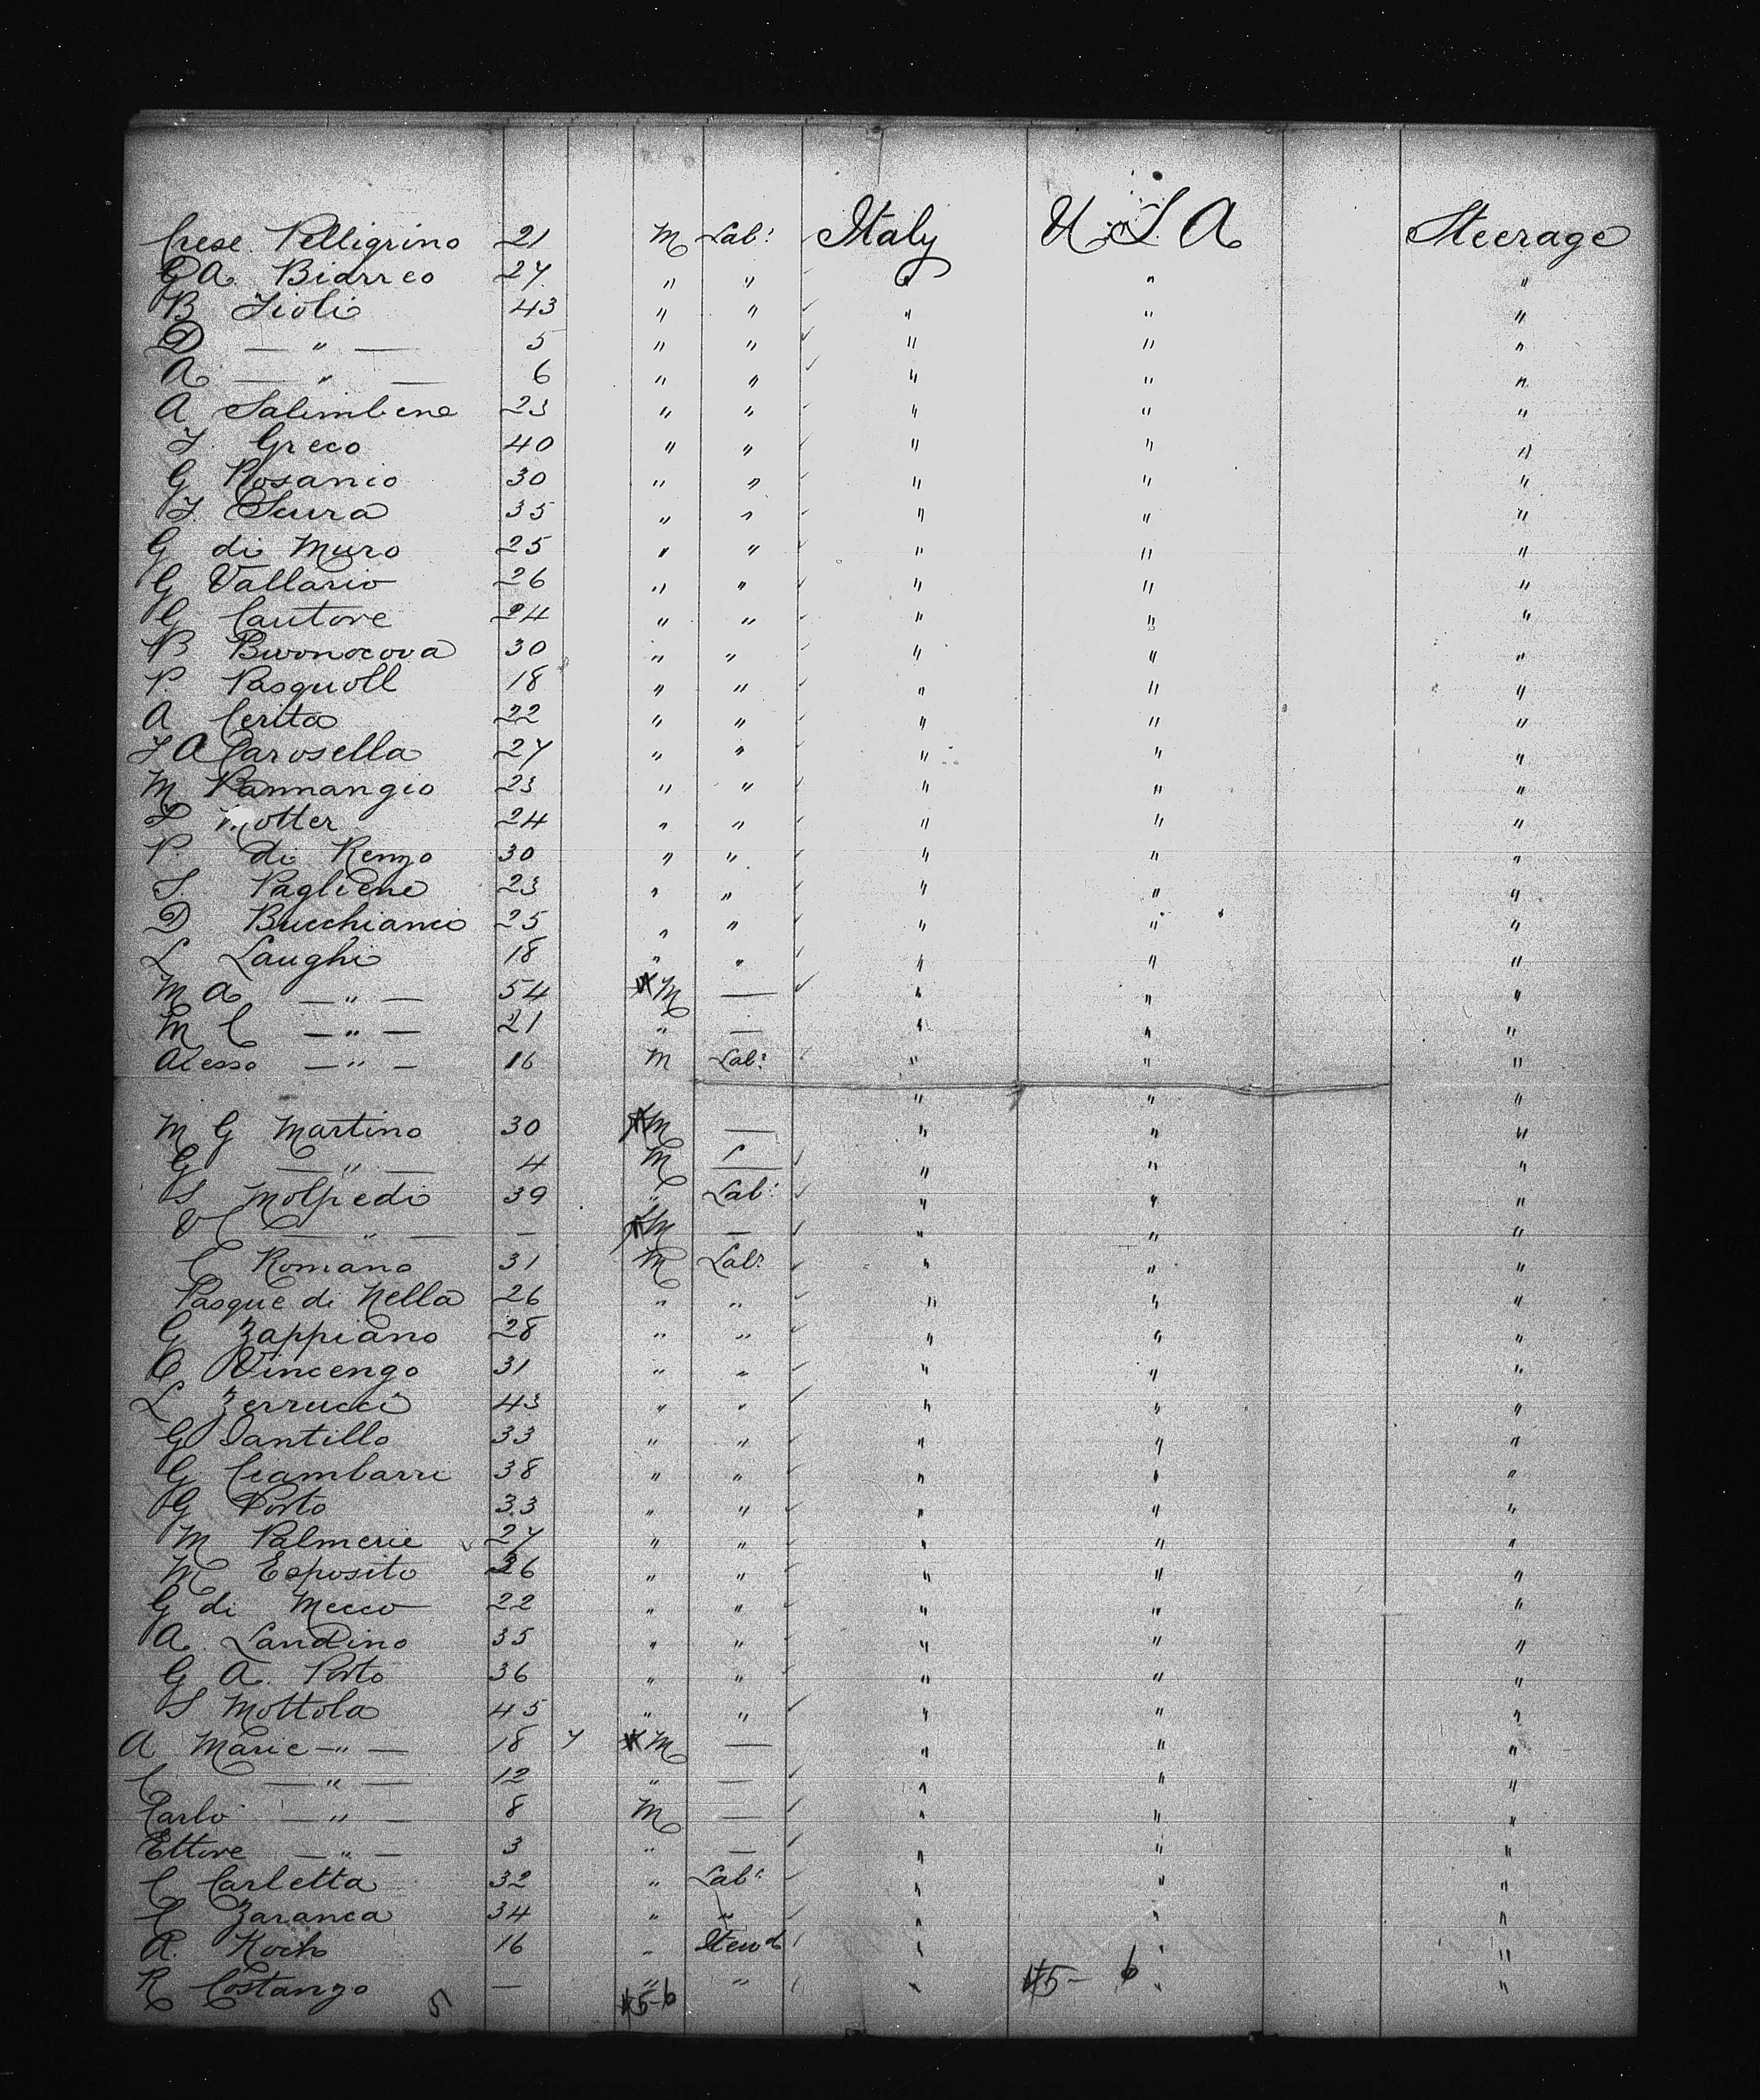 Crese Pelligrino 21 M Lab: Italy U S A Steerage
G A Biarreo 27 " " " " "
B Fioli 43 " " " " "
D — " — 5 " " " " "
A — " — 6 " " " " "
A Salimbene 23 " " " " "
F. Greco 40 " " " " "
G Rosanio 30 " " " " "
F. Scura 35 " " " " "
G di Muro 25 " " " " "
G Vallario 26 " " " " "
G Cautore 24 " " " " "
B Buonocova 30 " " " " "
P. Pasquoll 18 " " " " "
A Cerita 22 " " " " "
F A Carosella 27 " " " " "
M Rannangio 23 " " " " "
24 " " " " "
P. di Renzo 30 " " " " "
S. Pagliene 23 " " " " "
D Bucchianio 25 " " " " "
L Laughi 18 " " " " "
M A — " — 54 M — " " "
M C — " — 21 " — " " "
Alesso — " — 16 M Lab: " " "
" " "
M G Martino 30 M — " " "
G — " — 4 M — " " "
S Molpedi 39 " Lab: " " "
V C — " — — M — " " "
C Romano 31 M Lab: " " "
Pasque di Nella 26 " " " " "
G Zappiano 28 " " " " "
C Vincengo 31 " " " " "
L Zerrucci 43 " " " " "
G Santillo 33 " " " " "
G Ciambarri 38 " " " " "
G Porto 33 " " " " "
M Palmerie 27 " " " " "
M Esposito 36 " " " " "
G di Mecco 22 " " " " "
A. Landino 35 " " " " "
G A. Porto 36 " " " " "
S Mottola 45 " " " " "
A Marie — " — 18 7 M — " " "
C — " — 12 " — " " "
Carlo — " — 8 M — " " "
Ettore — " — 3 " — " " "
C Carletta 32 " Lab: " " "
C Zaranca 34 " " " " "
A. Koch 16 " Stewd " " "
R Costanzo — " " " " "
5 45-6 45- 6